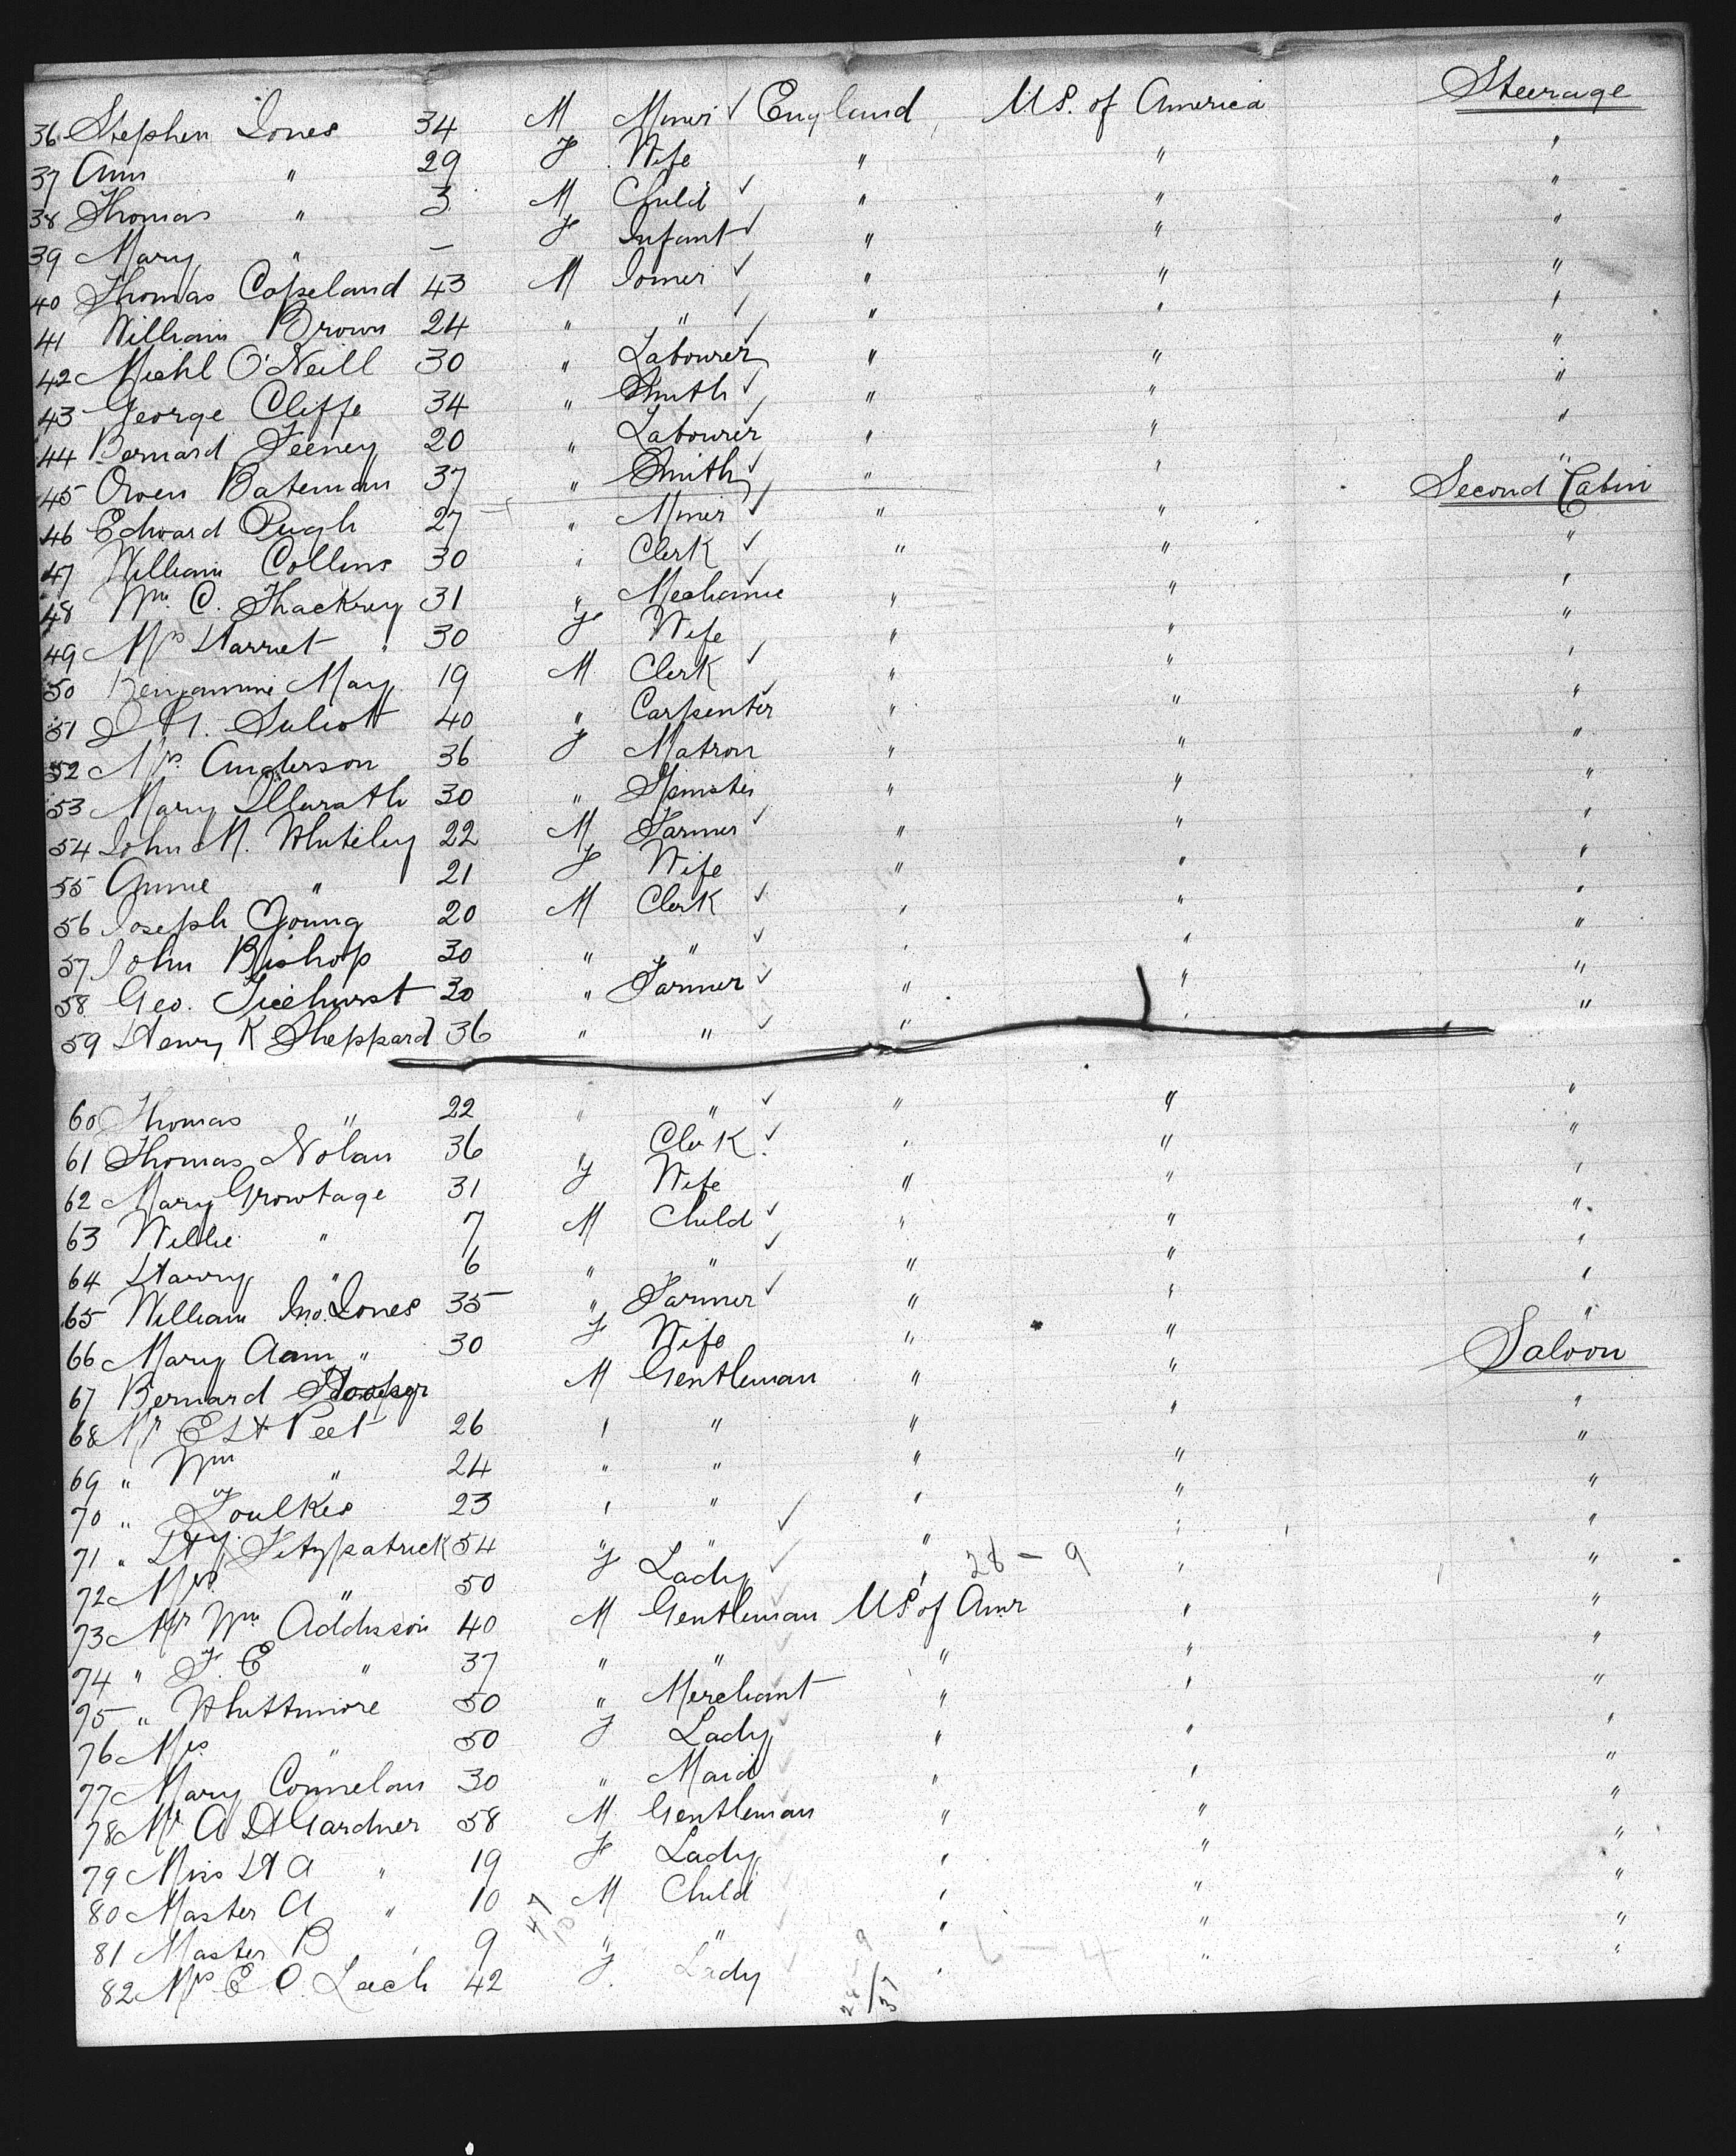 36 Stephen Jones 34 M Miner ✓ England U.S. of America Steerage
37 Ann " 29 F Wife " " "
38 Thomas " 3 M Child ✓ " " "
39 Mary " — F Infant ✓ " " "
40 Thomas Copeland 43 M Joiner ✓ " " "
41 William Brown 24 " " ✓ " " "
42 Michl O'Neill 30 " Labourer ✓ " " "
43 George Cliffe 34 " Smith ✓ " " "
44 Bernard Feeney 20 " Labourer ✓ " " "
45 Owen Bateman 37 " Smith ✓ " " "
46 Edward Pugh 27 " Miner ✓ " " Second Cabin
47 William Collins 30 " Clerk ✓ " " "
48 Wm. C. Thackrey 31 " Mechanic ✓ " " "
49 Mrs Harriet " 30 F Wife " " "
50 Benjamin May 19 M Clerk ✓ " " "
51 40 " Carpenter ✓ " " "
52 Mrs. Anderson 36 F Matron " " "
53 Mary 30 " Spinster " " "
54 John M. Whiteley 22 M Farmer ✓ " " "
55 Annie " 21 F Wife " " "
56 Joseph Young 20 M Clerk ✓ " " "
57 John Bishop 30 " " ✓ " " "
58 Geo. Ticehurst 30 " Farmer ✓ " " "
59 Henry K Sheppard 36 " " ✓ " " "
60 Thomas " 22 " " ✓ " " "
61 Thomas Nolan 36 " Clerk ✓ " " "
62 Mary Growtage 31 F Wife " " "
63 Willie " 7 M Child ✓ " " "
64 Harry " 6 " " ✓ " " "
65 William Jno. Jones 35 " Farmer ✓ " " "
66 Mary Ann " 30 F Wife " " "
67 Bernard M Gentleman " " Saloon
68 Mr E H Peet 26 " " " " "
69 " Wm " 24 " " " " "
70 " Foulkes 23 " " " " "
71 " Fitzpatrick 54 " " ✓ " " "
72 Mrs " 50 F Lady ✓ " 28 - 9 " "
73 Mr Wm Addisson 40 M Gentleman US of Amr " "
74 " F. E " 37 " " " " "
75 " Whittmore 50 " Merchant " " "
76 Mrs " 50 F Lady " " "
77 Mary Connelan 30 " Maid " " "
78 Mr A H Gardner 58 M Gentleman " " "
79 Miss H A " 19 F Lady " " "
80 Master A " 10 M Child " " "
81 Master B " 9 " " " " "
82 Mrs E O. Leach 42 F. Lady " " "
6 - 4